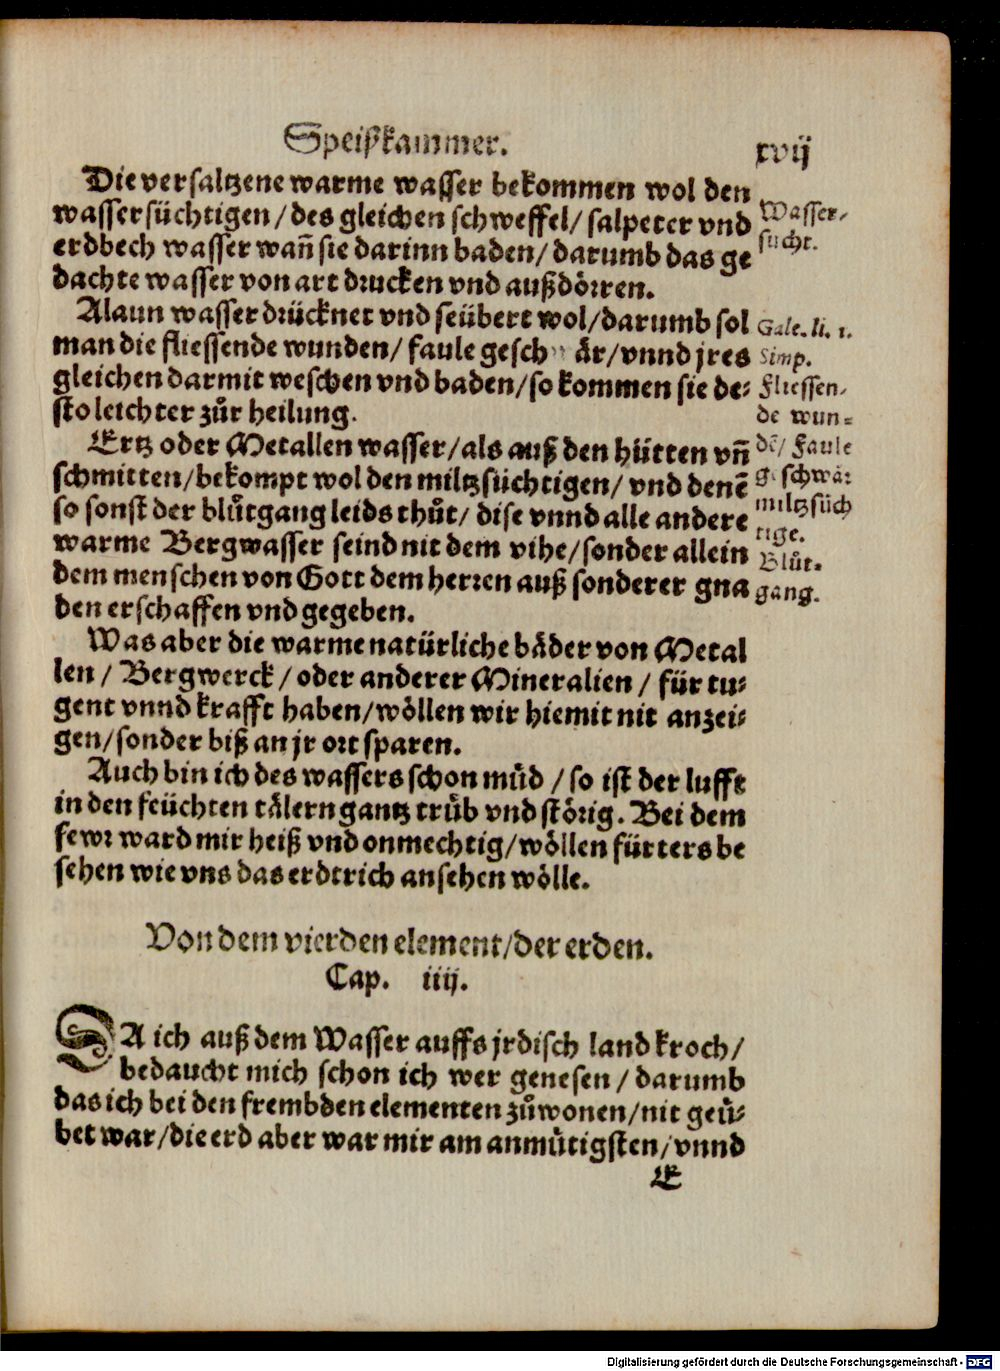 Speißkammer.
xvij
Die versaltzene warme wasser bekommen wol den
wassersüchtigen/des gleichen schweffel/salpeter vnd
erdbech wasser wañ sie darinn baden/darumb das ge
dachte wasser von art drucken vnd außdörren.
Alaun wasser drücknet vnd seübert wol/darumb sol
man die fliessende wunden/faule gesch är/vnnd jres
gleichen darmit weschen vnd baden/so kommen sie de-
sto leichter zůr heilung.
Ertz oder Metallen wasser/als auß den hütten vñ
schmitten/bekompt wol den miltzsüchtigen/vnd denẽ
so sonst der blůtgang leids thůt/dise vnnd alle andere
warme Bergwasser seind nit dem vihe/sonder allein
dem menschen von Gott dem herren auß sonderer gna
den erschaffen vnd gegeben.
Was aber die warme natürliche båder von Metal
len/Bergwerck/oder anderer Mineralien/für tu-
gent vnnd krafft haben/wöllen wir hiemit nit anzei-
gen/sonder biß an jr ort sparen.
Auch bin ich des wassers schon můd/so ist der lufft
in den feüchten tålern gantz trůb vnd störig. Bei dem
fewr ward mir heiß vnd onmechtig/wöllen fürters be
sehen wie vns das erdtrich ansehen wölle.
Von dem vierden element/der erden.
Cap. iiij.
DA ich auß dem Wasser auffs jrdisch land kroch/
bedaucht mich schon ich wer genesen/darumb
das ich bei den frembden elementen zůwonen/nit geů-
bet war/die erd aber war mir am anmůtigsten/vnnd
E
Wasser-
sucht.
Gale. li. 1.
Simp.
Fliessen-
de wun-
dẽ/Faule
geschwår
miltzsüch
tige.
Blůt-
gang.
Digitalisierung gefördert durch die Deutsche Forschungsgemeinschaft - DFG